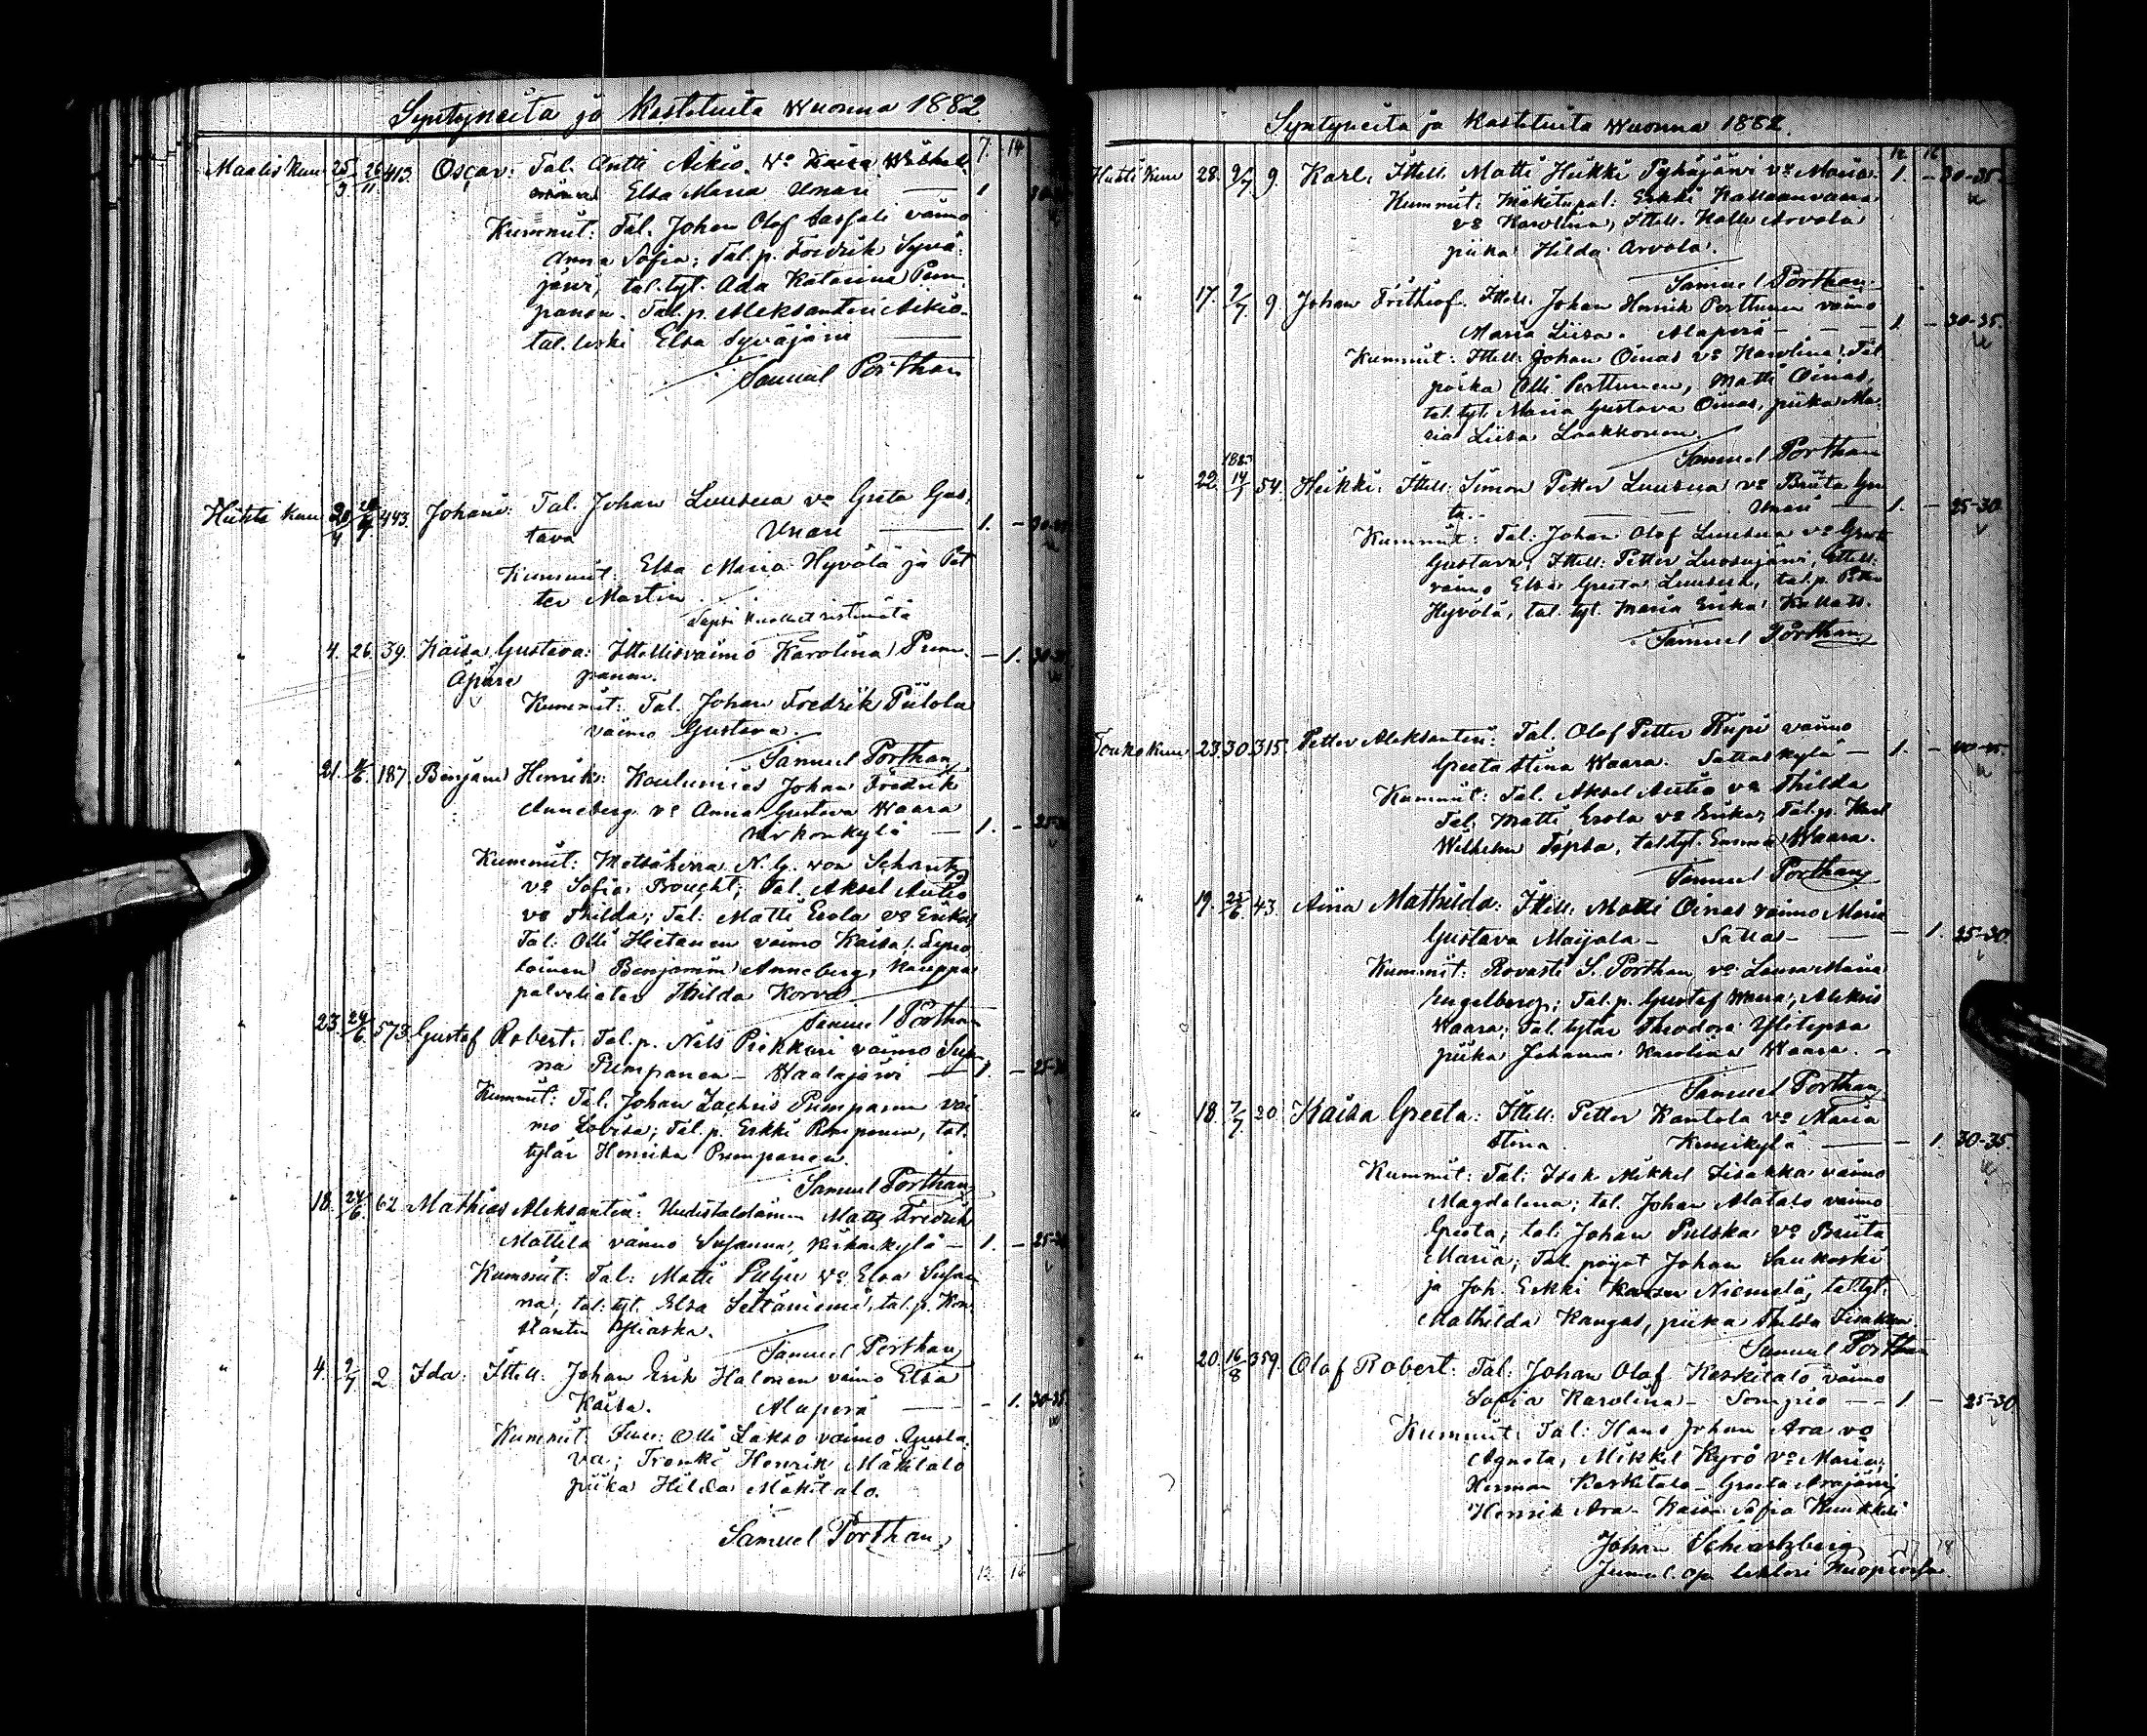 Syntyneitä ja Kastetuita Wuonna 1882
7. 14
Maalis kuu 25/3 26/11 413. Oscar: Tal. Antti Aikio. vo Kaisa
Elsa Maria Unari 1
Kummit: Tal. Johan Olof vaimo
Anna Sofia; Tal. p. Fredrik Syvä-
järvi, tal. tyt. Ada Katarina Pum-
panen. Tal. p. Aleksanteri Aikio
tal. leski Elsa Syväjärvi
Samuel Porthan
Huhti kuu 443. Johan: Tal. Johan Luusua vo Greta Gus-
tava Unari 1. -
Kummit: Elsa Maria Hyvölä ja Pet-
ter Martin.
" 4. 26. 39. Kaisa Gustava: Ittellisvaimo Karolina Pum- - 1.
Äpäre panen.
Kummit: Tal. Johan Fredrik Piilola
vaimo Gustava.
Samuel Porthan
" 21. 187. Benjam Henrik: Koulumies Johan Fredrik
Anneberg vo Anna Gustava Waara
1. -
Kummit: Metsäherra N. G. von Schantz
vo Sofia Tal. Aksel Autio
vo Thilda; Tal: Matti Erola vo Erika,
Tal: Olli Hietanen vaimo Kaisa;
Benjamin Anneberg, kauppa
palveliatar Thilda Korva
Samuel Porthan
" 23. 24/6 573. Gustaf Robert: Tal. p. Nils Pirkkari vaimo Susan-
na Pumpanen - Waalajärvi 1. -
Kummit: Tal. Johan Zachris Pumpanen vai-
mo Lovisa; Tal. p. Erkki Pumpanen, tal.
tytär Henrika Pumpanen.
Samuel Porthan
" 18. 24/6 62 Mathias Aleksanteri: Uudistalolainen Matts Fredrik
Mattila vaimo Susanna, 1. -
Kummit: Tal: Matti vo Elsa Susan-
na; tal: tyt. Elsa Siltaniemi, tal. p. Kon-
stantin
Samuel Porthan
" 4. 9/7 2. Ida: Ittell: Johan Erik Halonen vaimo Elsa
Kaisa. Alaperä - 1. 30-35.
Kummit: Olli Lakso vaimo Gusta-
va; Trenki Henrik Mäkitalo
piika Hilda Mäkitalo.
Samuel Porthan
12. 16
Syntyneitä ja Kastetuita Wuonna 1882.
12 16
Huhti kuu 28. 2/7 9. Karl: Ittell. Matti Heikki Pyhäjärvi vo Maria. 1. - 30-35.
Kummit: Mäkitupal: Erkki Kallaanvaara
vo Karolina, Ittell. Kalle Arvola
piika Hilda Arvola.
Samuel Porthan
" 17. 2/7 9. Johan Frithiof. Ittell. Johan Henrik Perttunen vaimo
Maria Liisa. Alaperä - 1 - 30-35.
Kummit: Ittell: Johan Oinas vo Karolina; Tal
poika Olli Perttunen, Matti Oinas,
tal. tyt. Maria Gustava Oinas, piika Ma-
ria Liisa Laakkonen.
Samuel Porthan
1883
" 22. 14/1 54. Heikki: Ittell: Simon Petter Luusua vo Briita Gre-
ta. Unari 1. - 25-30
Kummit: Tal: Johan Olof Luusua vo Greta
Gustava; Ittell: Petter Ittell:
vaimo Elsa Greta Luusua, tal. p. Petter
Hyvölä, tal. tyt. Maria Erika
Samuel Porthan
Touko kuu 23. 30. 315. Petter Aleksanteri: Tal. Olof Petter Riipi vaimo
Greta Stina Waara. Sattaskylä - 1. -
Kummit: Tal. Aksel Autio vo Thilda
Tal. Matti Erola vo Erika, Tal. p. Karl
Wilhelm Tepsa, tal. tyt. Emma Waara.
Samuel Porthan
" 19. 25/6 43. Aina Mathilda: Ittell: Matti Oinas vaimo Maria
Gustava Maijala - - 1. 25-30.
Kummit: Rovasti S. Porthan vo Laura Maria
Engelberg; Tal. p. Gustaf Waara, Aleksis
Waara; Tal. tytär Theodora Ylitepsa
piika Johanna Karolina Waara.
Samuel Porthan
" 18. 7/7 20 Kaisa Greeta: Ittell: Petter Kantola vo Maria
Stina. - 1. 30-35.
Kummit: Tal: Isak Mikkel Iisakka vaimo
Magdalena; tal. Johan Alatalo vaimo
Greta; tal. Johan Pulska vo Briita
Maria; Tal. pojat Johan Saukoski
ja Joh. Erkki Niemelä, tal. tyt.
Mathilda Kangas, piika Thilda Iisakka
Samuel Porthan
" 20. 16/8 359. Olof Robert: Tal: Johan Olof Keskitalo vaimo
Sofia Karolina - Sompio - 1 - 25-30
Kummit: Tal: Hans Johan Ara vo
Agneta, Mikkel Kyrö vo Maria,
Herman Keskitalo - Greeta Arajärvi
Henrik Ara - Kaisa Sofia Kuukkeli
Johan Schwartzberg
Jumal. op. lehtori Kuopiossa.